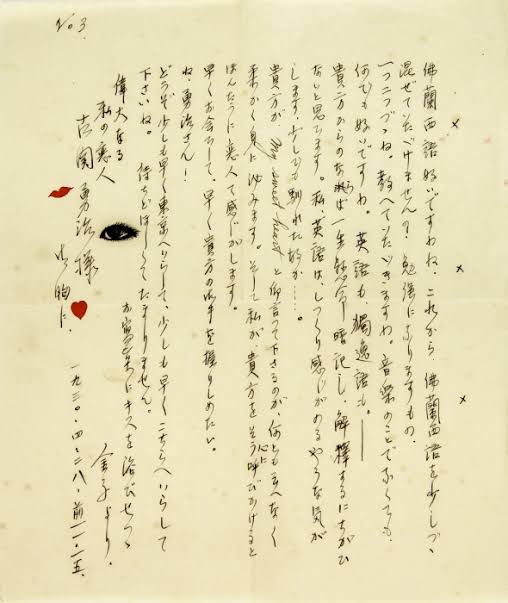 No 3.
佛蘭西語好いですわね、これから、佛蘭西語を少しづゝ
混ぜていたゞけません? 勉強になりますもの、
一つ二つづつね。教へていたゞきますわ。音楽のことでなくても、
何でも好いですわ。英語も、獨逸語も。――
貴方からのなれば一生懸命暗記し、解釋するにちがひ
ないと思ひます。私、英語は、しつくり感じがめるやうな気が
します、少しでも馴れた故か…。
貴方が My sweet heart と仰言つて下さるのが、何とも云へなく
柔かく身に沁みます。そして私が、貴方を心にさう呼びかけると
ほんたうに恋人て感じがします。
早くお会ひして、早く貴方の御手を握りしめたい。
ね、勇治さん!
どうぞ少しも早く東京へいらして、少しも早くこちらへいらして
下さいね。待ちどほしくてたまりません。
お写真にキスを浴びせつゝ
金子より。
偉大なる
私の恋人
古関勇治様
御胸に、
一九三〇・四・二八・前一一・一五、